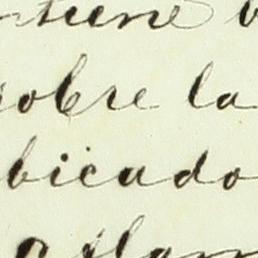 ntiene
sobre la
bicado